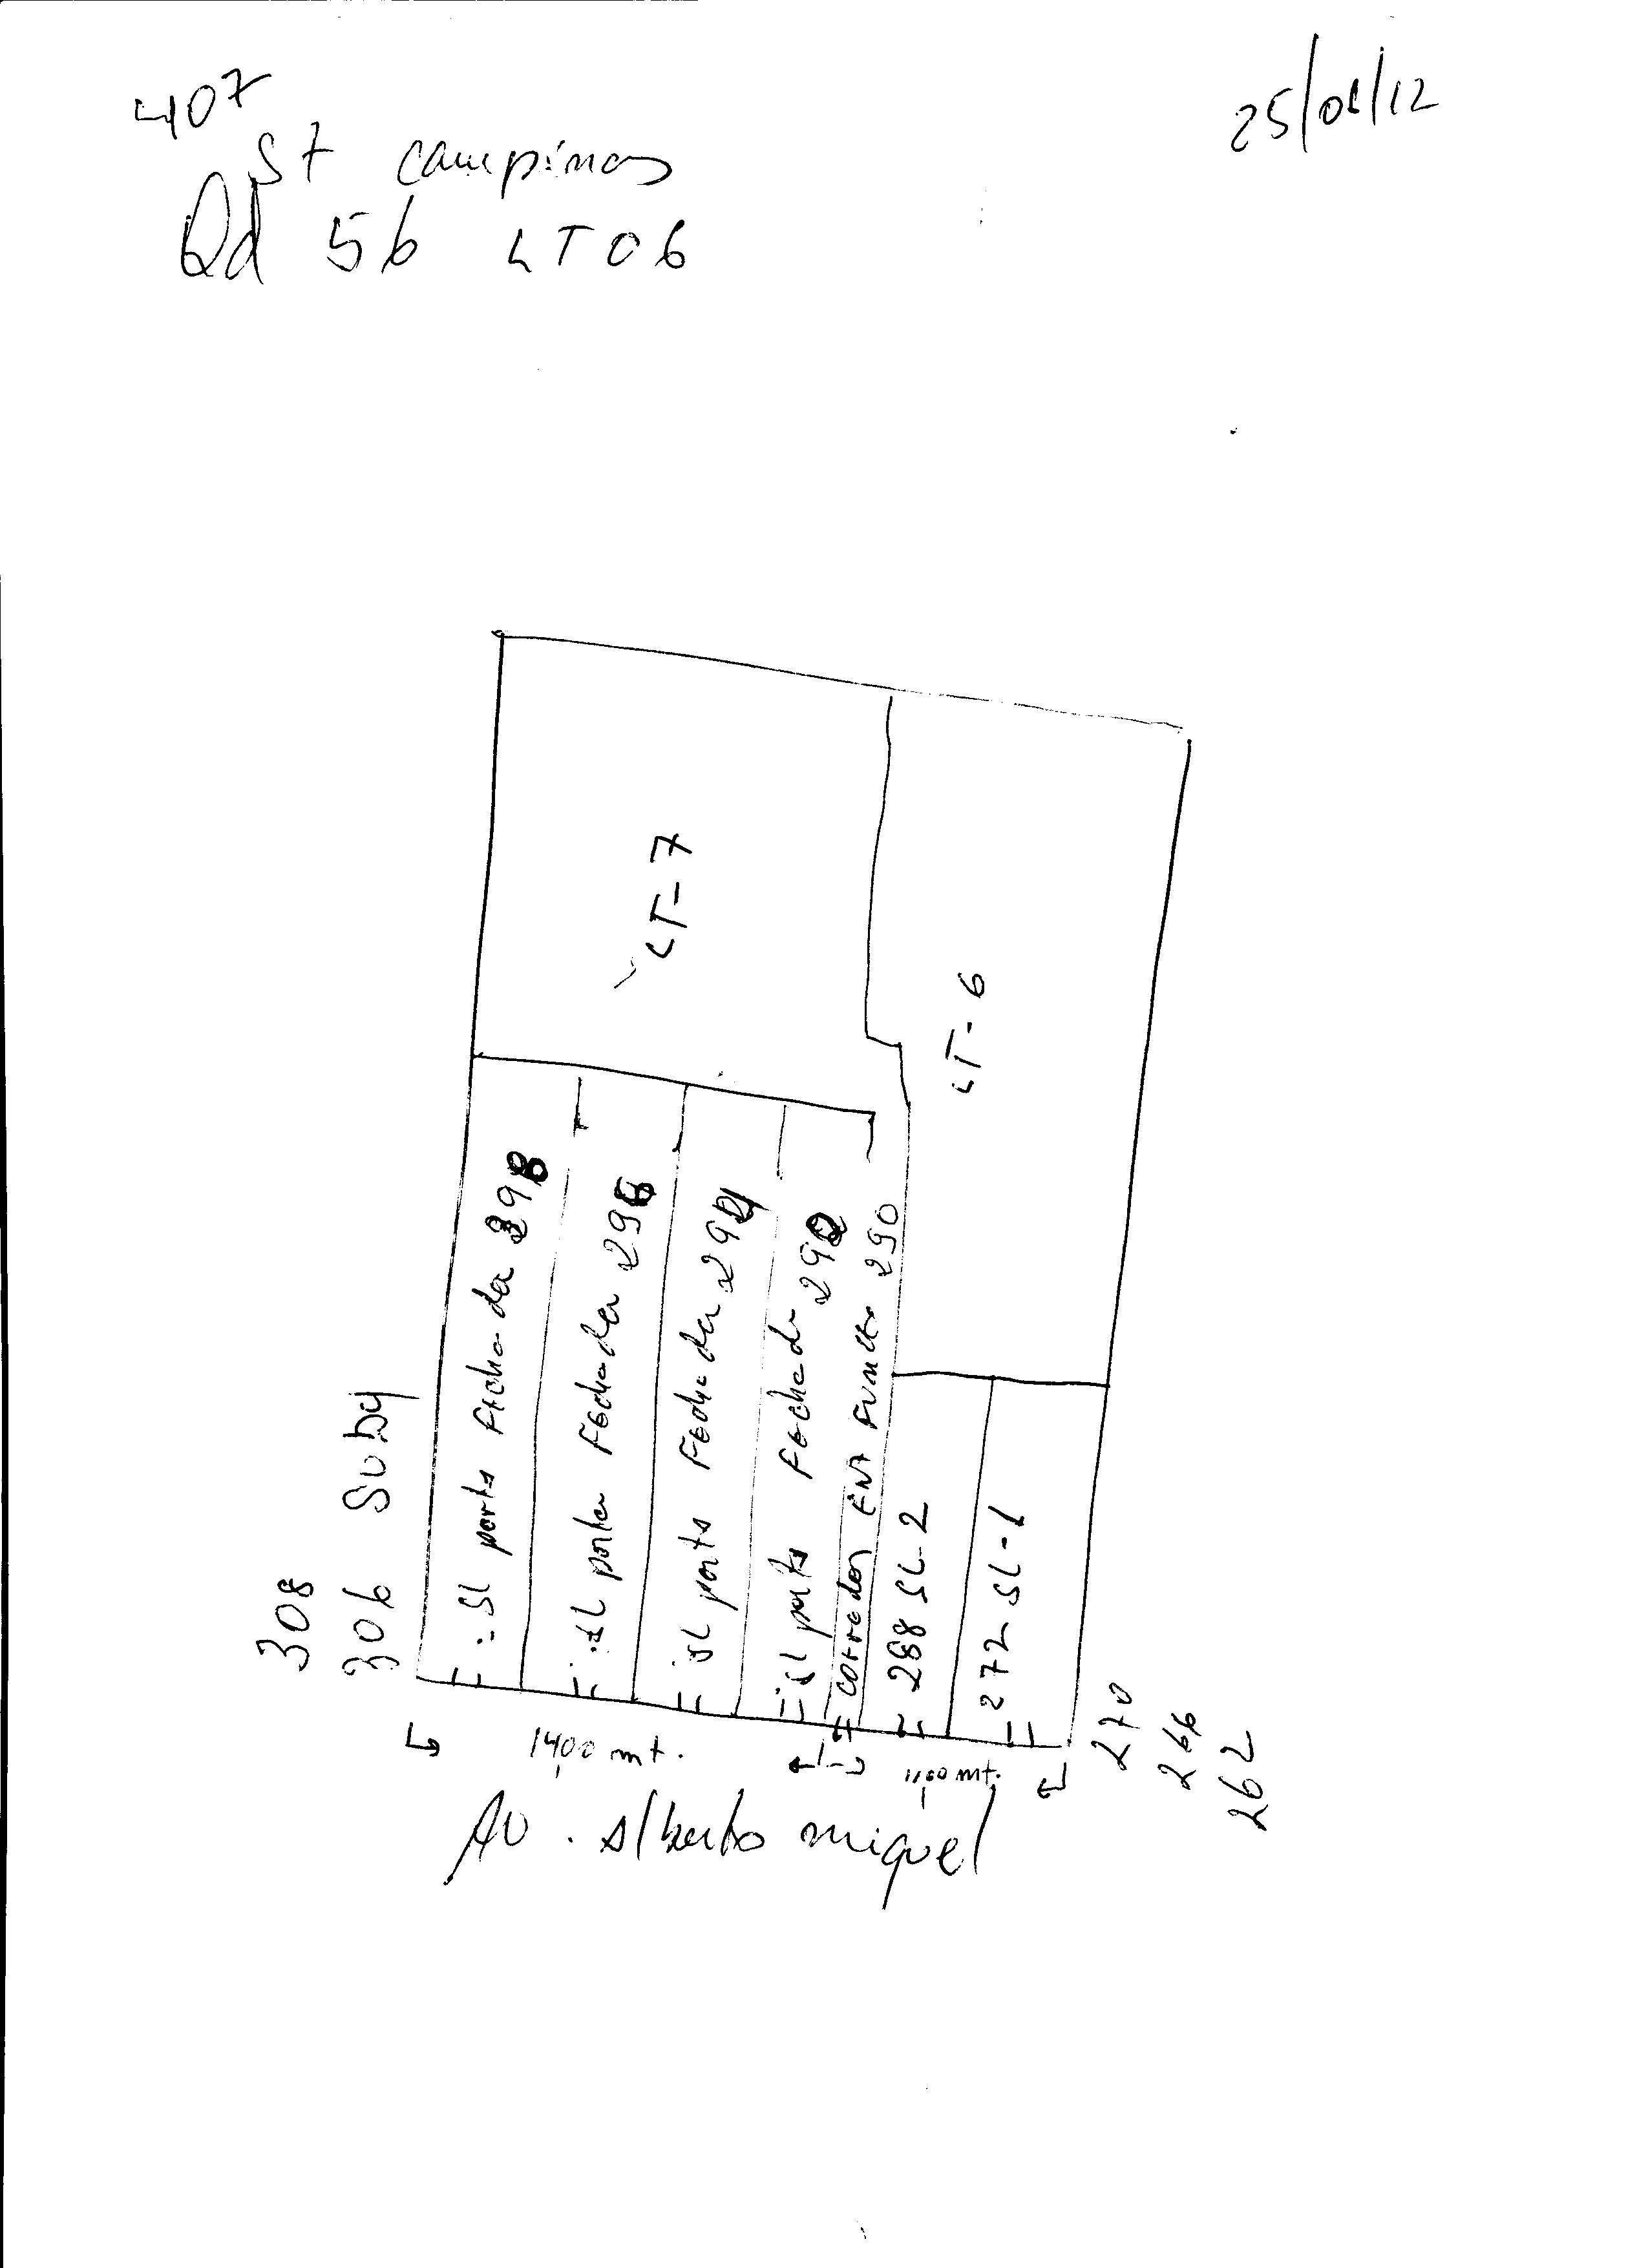 407
25/01/12
ST campinas
Qd 56 LT 06
LT-7
LT-6
SL porta Fechada 298
SL porta Fechada 296
SL porta Fechada 294
SL porta Fechada 292
corredor 290
288 SL-2
272 SL-1
308
306
270
266
262
1400 mt.
1100 mt.
Av. Alberto miguel